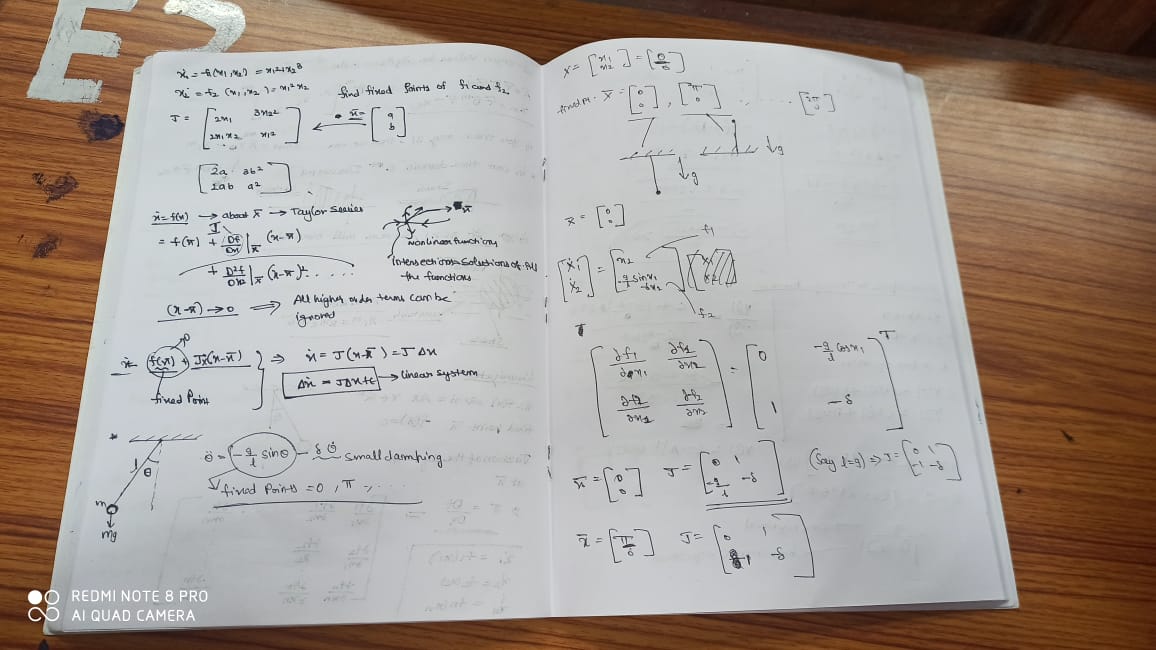 E2
ẋ₁ = f₁(x₁,x₂) = x₁²+x₂³
ẋ₂ = f₂ (x₁,x₂) = x₁² x₂
find fixed points of f₁ and f₂
J = [2x₁ 3x₂²
2x₁x₂ x₁²]
x̄ = [a
b]
[2a 3b²
2ab a²]
ẋ = f(x) → about x̄ → Taylor Series
J
= f(x̄) + Df/Dx|x̄ (x-x̄)
+ D²f/Dx²|x̄ (x-x̄)² . . . .
x̄
Nonlinear functions
Intersections = Solutions of All
the functions
(x-x̄) → 0 ⟹ All higher order terms can be
ignored
0
ẋ = f(x̄) + Jx̄(x-x̄) } ⇒ ẋ = J(x-x̄) = J Δx
fixed Point
→ linear system
l
θ
m
mg
θ̈ = -g/l sinθ - δ θ̇ small damping
fixed Points = 0, π, ...
X = [x₁
x₂] = [θ
θ̇]
fixed Pt. x̄ = [0
0], [π
0] . . . .
g
g
x̄ = [0
0]
f₁
[ẋ₁
ẋ₂] = [x₂
-g/l sinx₁
-δx₂]
f₂
J
[∂f₁/∂x₁ ∂f₁/∂x₂
∂f₂/∂x₁ ∂f₂/∂x₂] = [0 -g/l cosx₁
1 -δ]ᵀ
x̄ = [0
0] J = [0 1
-g/l -δ] (Say l=g) ⇒ J = [0 1
-1 -δ]
x̄ = [π
0] J = [0 1
1 -δ]
REDMI NOTE 8 PRO
AI QUAD CAMERA